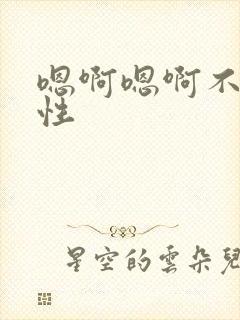 嗯啊嗯啊不
性
星空的雲朵兒